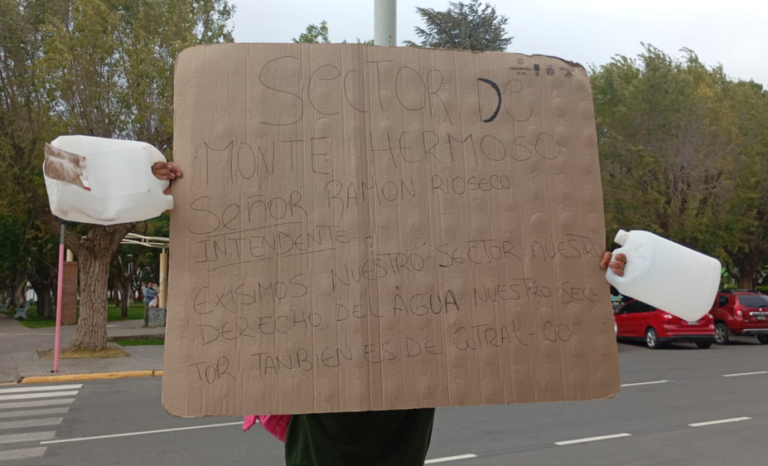 SECTOR DE
MONTE HERMOSO
SEÑOR RAMON RIOSECO
INTENDENTE.
EXISIMOS NUESTRO SECTOR NUESTR
DERECHO DEL AGUA NUESTRO SEC-
TOR TANBIEN ES DE CUTRAL-CO-